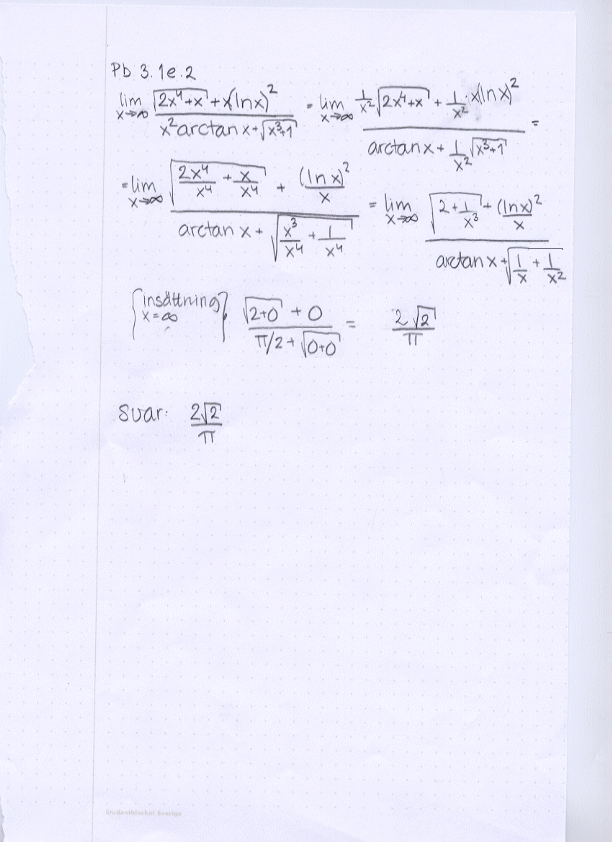 Pb 3.1e.2
lim x→∞ (√(2x⁴+x) + x(ln x)²) / (x² arctan x + √(x³+1)) = lim x→∞ (1/x² √(2x⁴+x) + 1/x² · x(ln x)²) / (arctan x + 1/x² √(x³+1)) =
= lim x→∞ (√(2x⁴/x⁴ + x/x⁴) + (ln x)²/x) / (arctan x + √(x³/x⁴ + 1/x⁴)) = lim x→∞ (√(2 + 1/x³) + (ln x)²/x) / (arctan x + √(1/x + 1/x²))
{insättning x = ∞} (√(2+0) + 0) / (π/2 + √(0+0)) = 2√2/π
Svar: 2√2/π